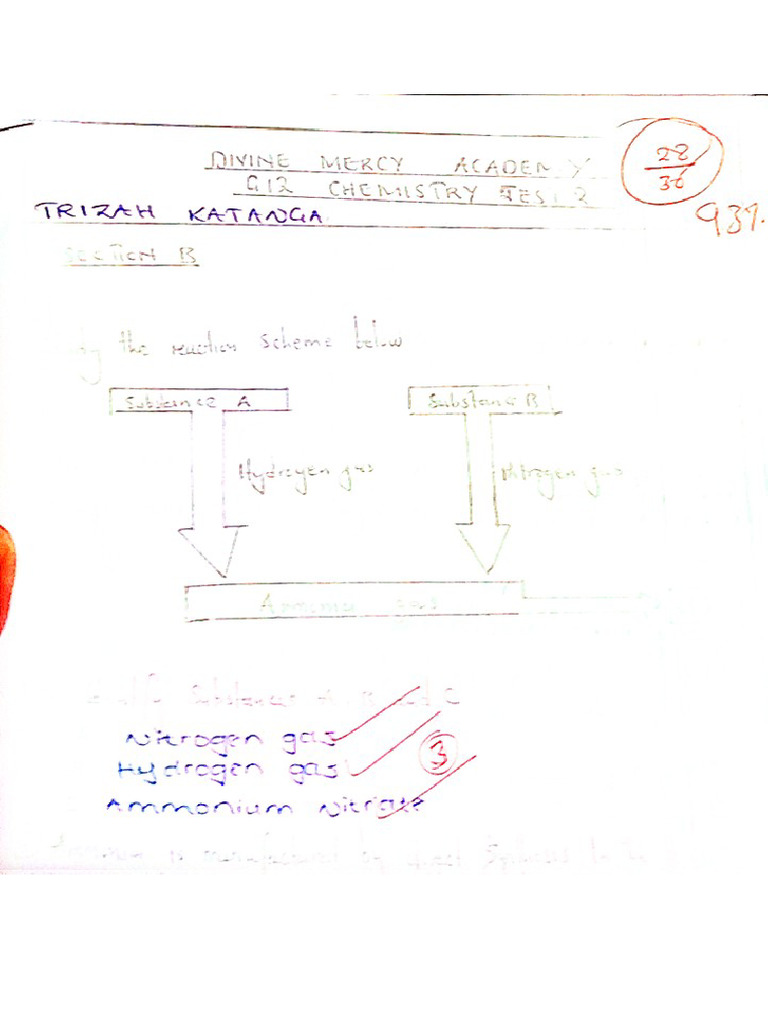 DIVINE MERCY ACADEMY
28
36
G12 CHEMISTRY TEST 2
93%
TRIZAH KATANGA
SECTION B
the reaction scheme below
Substance A
Substance B
Hydrogen gas
Nitrogen gas
Ammonia gas
Substances A, B and C
Nitrogen gas
Hydrogen gas
3
Ammonium Nitrate
Ammonia is manufactured by direct